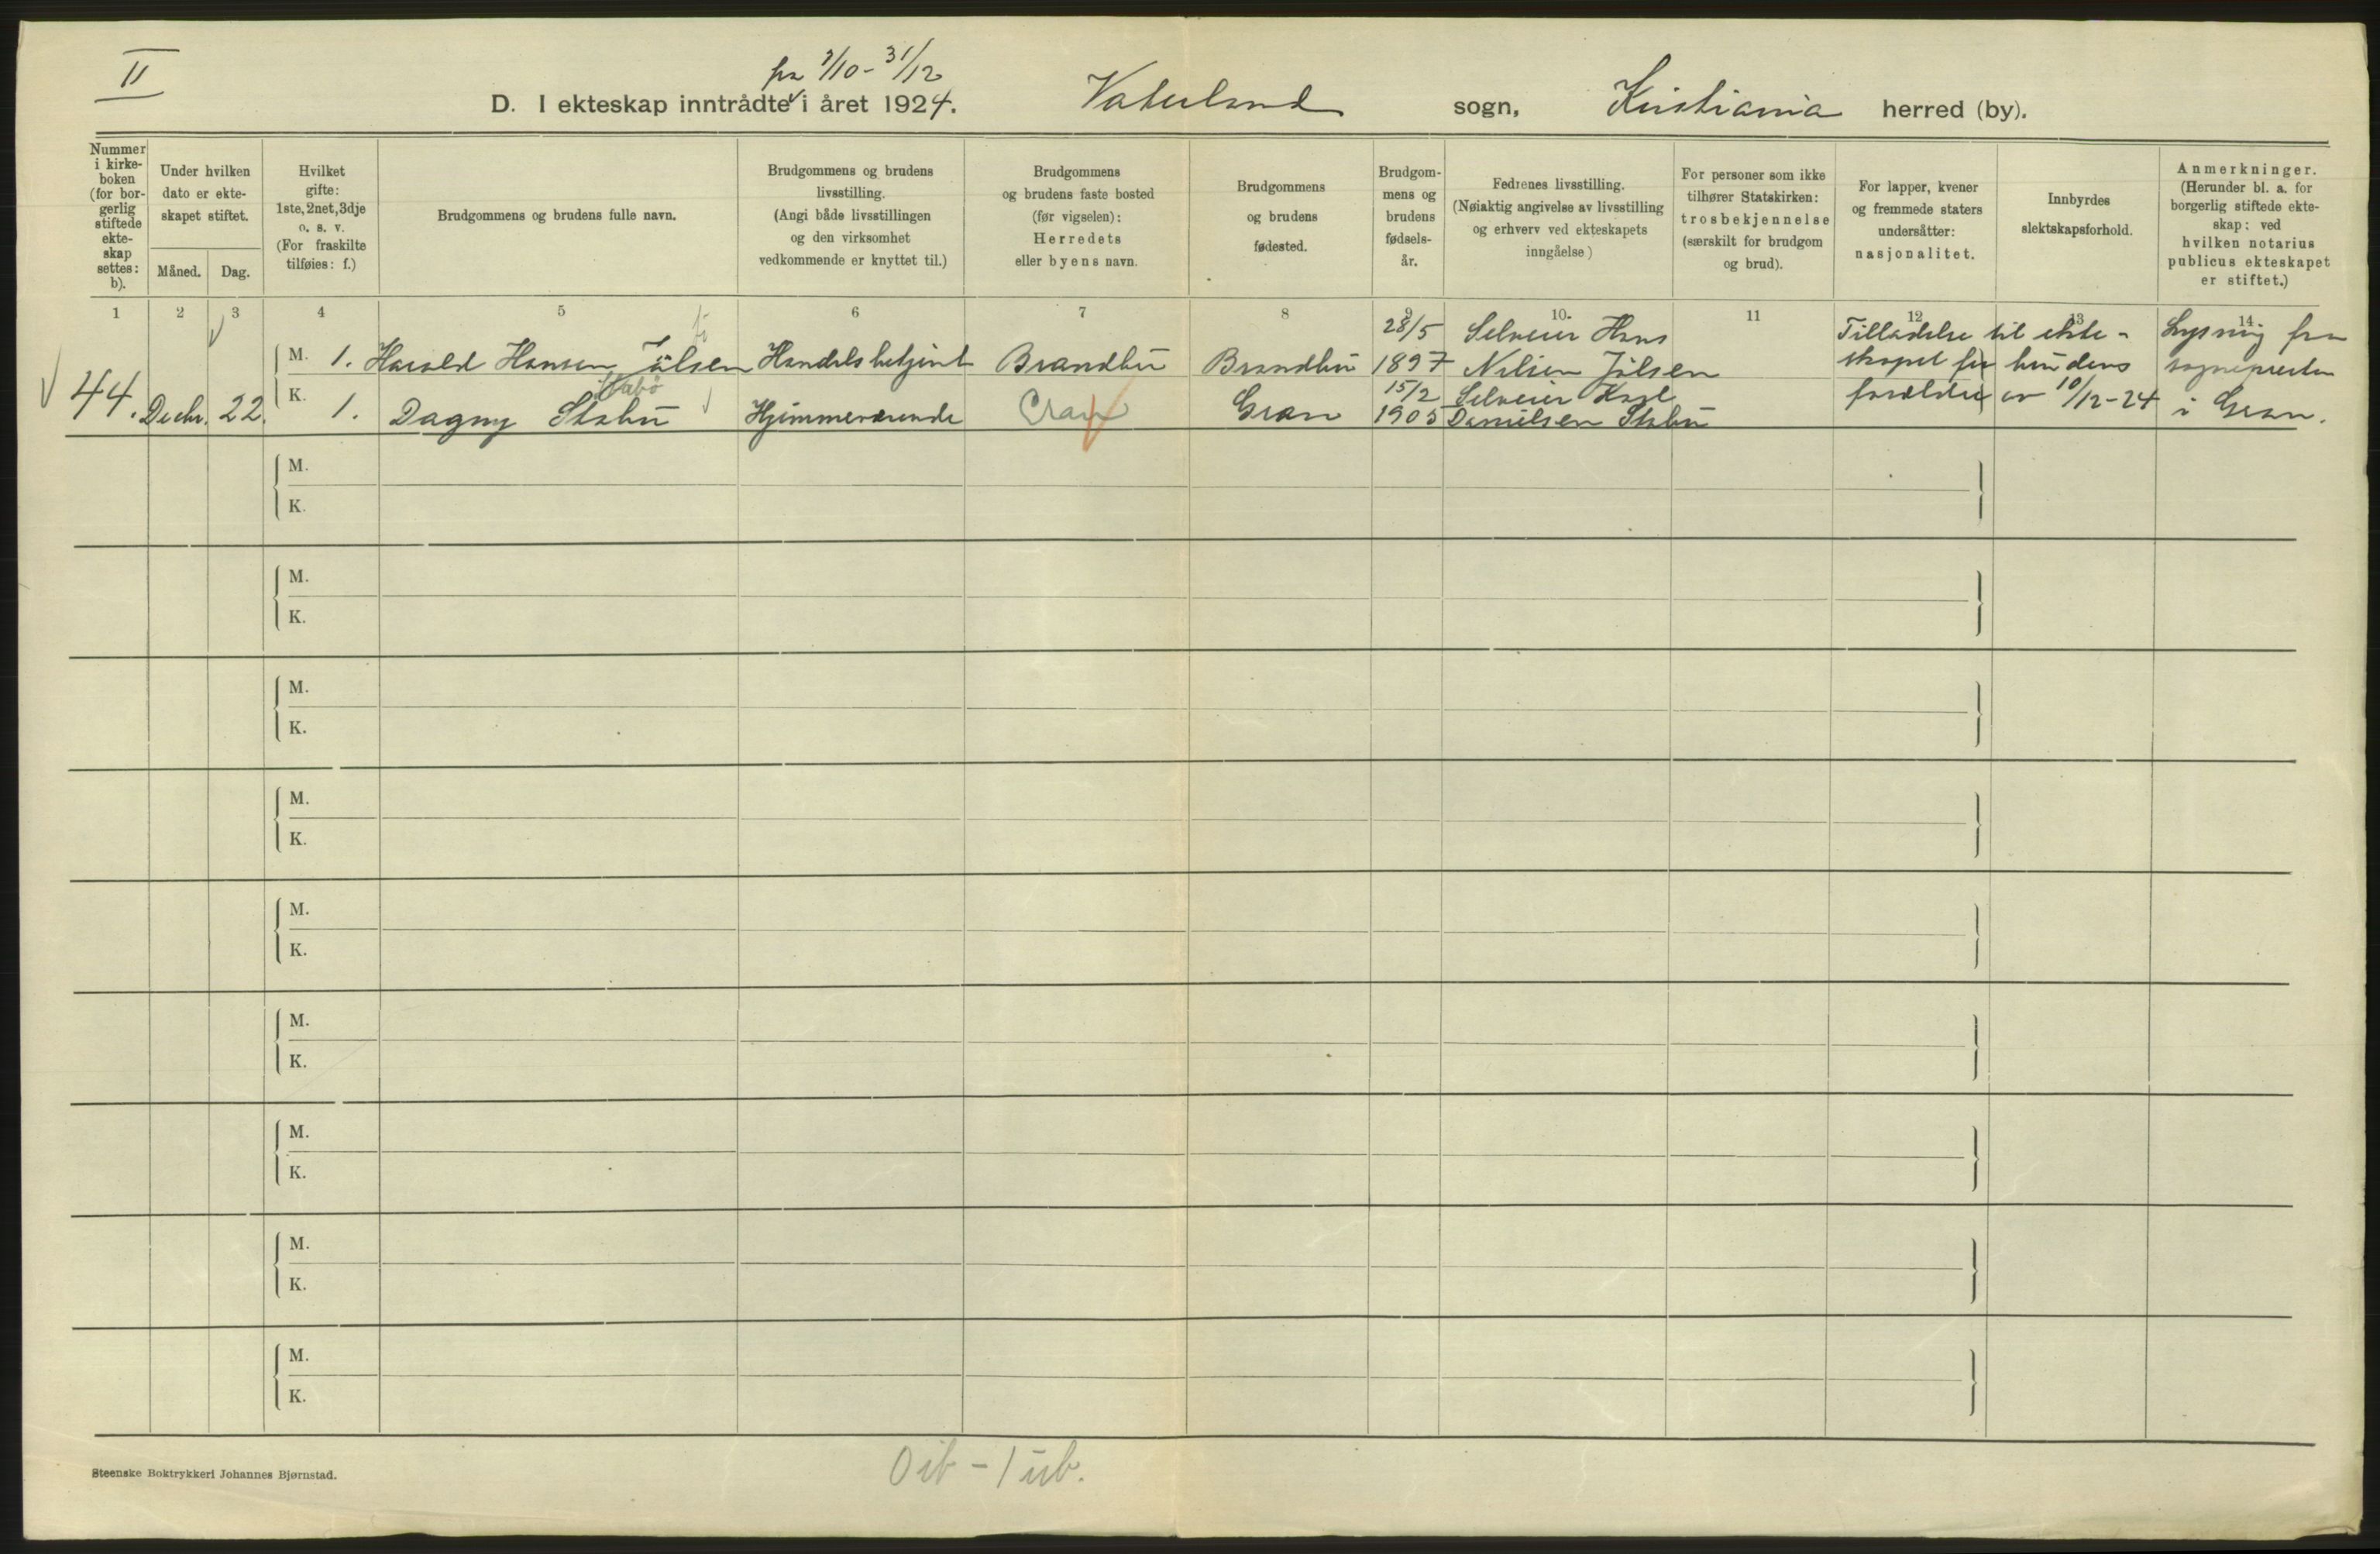 II
fra 1/10 - 31/12
D. I ekteskap inntrådte i året 1924. Vaterland sogn, Kristiania herred (by).
Nummer i kirke-boken (for bor-gerlig stiftede ekte-skap settes: b).
Under hvilken dato er ekte-skapet stiftet.
Måned. Dag.
Hvilket gifte: 1ste, 2net, 3dje o. s. v. (For fraskilte tilføies: f.)
Brudgommens og brudens fulle navn.
Brudgommens og brudens livsstilling. (Angi både livsstillingen og den virksomhet vedkommende er knyttet til.)
Brudgommens og brudens faste bosted (før vigselen): Herredets eller byens navn.
Brudgommens og brudens fødested.
Brudgom-mens og brudens fødsels-år.
Fedrenes livsstilling. (Nøiaktig angivelse av livsstilling og erhverv ved ekteskapets inngåelse)
For personer som ikke tilhører Statskirken: trosbekjennelse (særskilt for brudgom og brud).
For lapper, kvener og fremmede staters undersåtter: nasjonalitet.
Innbyrdes slektskapsforhold.
Anmerkninger. (Herunder bl. a. for borgerlig stiftede ekte-skap: ved hvilken notarius publicus ekteskapet er stiftet.)
1 2 3 4 5 6 7 8 9 10. 11 12 13 14
44. Decbr. 22.
M. 1. Harald Hansen Jølsen Handelsbetjent Brandbu Brandbu 28/5 1897 Selveier Hans Nilsen Jølsen
K. 1. Dagny Stabu Hjemmeværende Gran Gran 15/2 1905 Selveier Karl Danielsen Stabu
Stabo
Tilladelse til ekte-
skapet fra brudens
forældre av 10/12-24
Lysning fra
sognepresten
i Gran.
M.
K.
M.
K.
M.
K.
M.
K.
M.
K.
M.
K.
M.
K.
M.
K.
M.
K.
Steenske Boktrykkeri Johannes Bjørnstad.
0 ib - 1 ub.